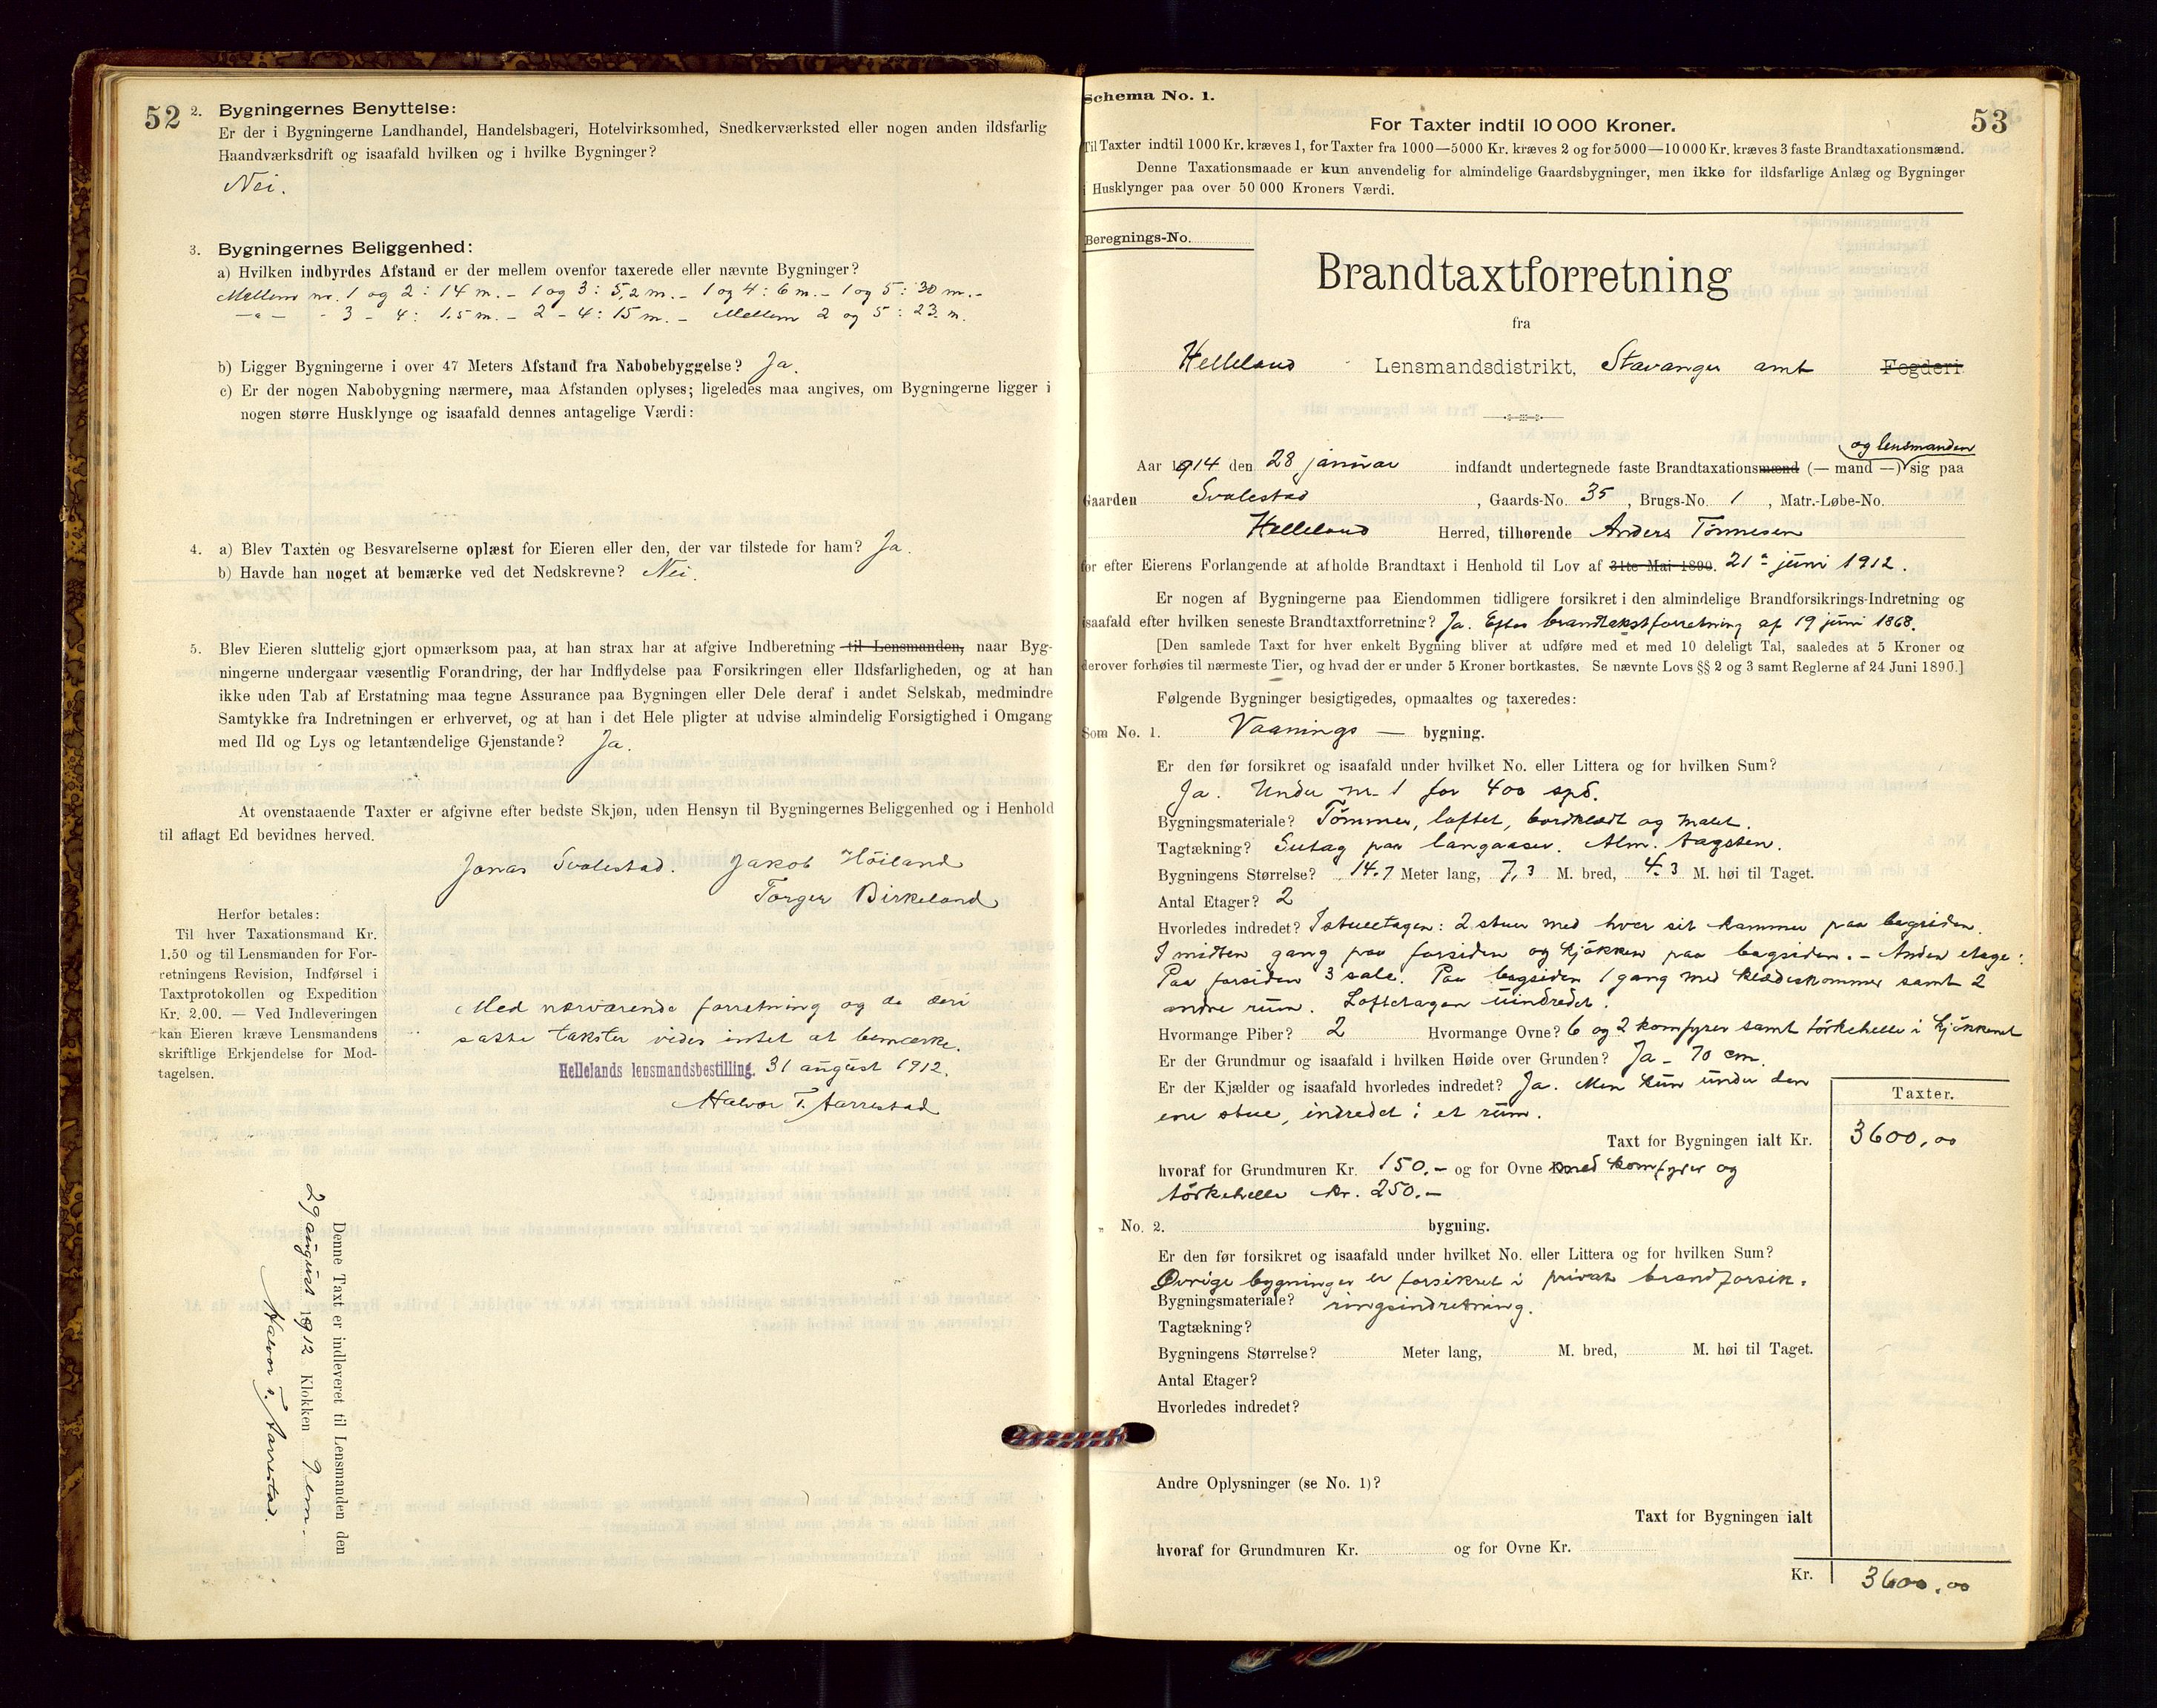 52
2. Bygningernes Benyttelse:
Er der i Bygningerne Landhandel, Handelsbageri, Hotelvirksomhed, Snedkerværksted eller nogen anden ildsfarlig
Haandværksdrift og isaafald hvilken og i hvilke Bygninger?
Nei.
3. Bygningernes Beliggenhed:
a) Hvilken indbyrdes Afstand er der mellem ovenfor taxerede eller nævnte Bygninger?
Mellem nr. 1 og 2: 14 m. - 1 og 3: 5,2 m. - 1 og 4: 6 m. - 1 og 5: 30 m. -
-"- - 3 - 4: 1.5 m. - 2 - 4: 15 m. - Mellem 2 og 5: 23. m.
b) Ligger Bygningerne i over 47 Meters Afstand fra Nabobebyggelse? Ja.
c) Er der nogen Nabobygning nærmere, maa Afstanden oplyses; ligeledes maa angives, om Bygningerne ligger i
nogen større Husklynge og isaafald dennes antagelige Værdi:
4. a) Blev Taxten og Besvarelserne oplæst for Eieren eller den, der var tilstede for ham? Ja.
b) Havde han noget at bemærke ved det Nedskrevne? Nei.
5. Blev Eieren sluttelig gjort opmærksom paa, at han strax har at afgive Indberetning til Lensmanden, naar Byg-
ningerne undergaar væsentlig Forandring, der har Indflydelse paa Forsikringen eller Ildsfarligheden, og at han
ikke uden Tab af Erstatning maa tegne Assurance paa Bygningen eller Dele deraf i andet Selskab, medmindre
Samtykke fra Indretningen er erhvervet, og at han i det Hele pligter at udvise almindelig Forsigtighed i Omgang
med Ild og Lys og letantændelige Gjenstande? Ja.
At ovenstaaende Taxter er afgivne efter bedste Skjøn, uden Hensyn til Bygningernes Beliggenhed og i Henhold
til aflagt Ed bevidnes herved.
Jonas Svalestad. Jakob Höiland
Torger Birkeland
Herfor betales:
Til hver Taxationsmand Kr.
1.50 og til Lensmanden for For-
retningens Revision, Indførsel i
Taxtprotokollen og Expedition
Kr. 2.00. — Ved Indleveringen
kan Eieren kræve Lensmandens
skriftlige Erkjendelse for Mod-
tagelsen.
Med nærværende forretning og de deri
satte takster vides intet at bemærke.
Hellelands lensmandsbestilling. 31 august 1912.
Halvor T. Aarrestad
Denne Taxt er indleveret til Lensmanden den
29 august 1912 Klokken 9 em.
Halvor T. Aarrestad.
Schema No. 1.
53
For Taxter indtil 10 000 Kroner.
Til Taxter indtil 1000 Kr. kræves 1, for Taxter fra 1000—5000 Kr. kræves 2 og for 5000—10 000 Kr. kræves 3 faste Brandtaxationsmænd.
Denne Taxationsmaade er kun anvendelig for almindelige Gaardsbygninger, men ikke for ildsfarlige Anlæg og Bygninger
i Husklynger paa over 50 000 Kroners Værdi.
Beregnings-No.
Brandtaxtforretning
fra
Helleland Lensmandsdistrikt, Stavanger amt Fogderi
og lensmanden
Aar 1914 den 28 januar indfandt undertegnede faste Brandtaxationsmænd (— mand —) sig paa
Gaarden Svalestad, Gaards-No. 35, Brugs-No. 1, Matr.-Løbe-No.
Helleland Herred, tilhørende Anders Tönnesen
for efter Eierens Forlangende at afholde Brandtaxt i Henhold til Lov af 31te Mai 1890. 21 juni 1912.
Er nogen af Bygningerne paa Eiendommen tidligere forsikret i den almindelige Brandforsikrings-Indretning og
isaafald efter hvilken seneste Brandtaxtforretning? Ja. Efter brandtakstforretning af 19 juni 1868.
[Den samlede Taxt for hver enkelt Bygning bliver at udføre med et med 10 deleligt Tal, saaledes at 5 Kroner og
derover forhøies til nærmeste Tier, og hvad der er under 5 Kroner bortkastes. Se nævnte Lovs §§ 2 og 3 samt Reglerne af 24 Juni 1890.]
Følgende Bygninger besigtigedes, opmaaltes og taxeredes:
Som No. 1. Vaanings — bygning.
Er den før forsikret og isaafald under hvilket No. eller Littera og for hvilken Sum?
Ja. Under nr. 1 for 400 spd.
Bygningsmateriale? Tømmer, loftet, bordklædt og malet.
Tagtækning? Sutag paa langaaser. Alm. tagsten.
Bygningens Størrelse? 14.7 Meter lang, 7,3 M. bred, 4.3 M. høi til Taget.
Antal Etager? 2
Hvorledes indredet? I stueetagen: 2 stuer med hver sit kammer paa bagsiden.
I midten gang paa forsiden og kjökken paa bagsiden. - Anden etage:
Paa forsiden 3 sale. Paa bagsiden 1 gang med klædeskammer samt 2
andre rum. Loftetagen uindredet.
Hvormange Piber? 2 Hvormange Ovne? 6 og 2 komfyrer samt törkehelle i kjökkenet
Er der Grundmur og isaafald i hvilken Høide over Grunden? Ja - 70 cm.
Er der Kjælder og isaafald hvorledes indredet? Ja. Men kun under den
ene stue, indredet i et rum.
Taxter.
Taxt for Bygningen ialt Kr. 3600,00
hvoraf for Grundmuren Kr. 150.- og for Ovne med komfyrer og
törkehelle kr. 250.-
" No. 2. bygning.
Er den før forsikret og isaafald under hvilket No. eller Littera og for hvilken Sum?
Øvrige bygninger er forsikret i privat brandforsik-
Bygningsmateriale? ringsindretning.
Tagtækning?
Bygningens Størrelse? Meter lang, M. bred, M. høi til Taget.
Antal Etager?
Hvorledes indredet?
Andre Oplysninger (se No. 1)?
Taxt for Bygningen ialt
hvoraf for Grundmuren Kr. og for Ovne Kr.
Kr. 3600,00